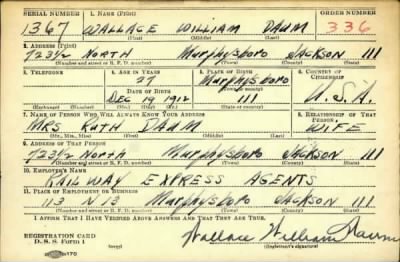 SERIAL NUMBER 1. NAME (Print) ORDER NUMBER
1367 WALLACE WILLIAM DAUM 336
(First) (Middle) (Last)
2. ADDRESS (Print)
723½ NORTH Murphysboro JACKSON Ill
(Number and street or R. F. D. number) (Town) (County) (State)
3. TELEPHONE 4. AGE IN YEARS 5. PLACE OF BIRTH 6. COUNTRY OF CITIZENSHIP
27 Murphysboro
DATE OF BIRTH (Town or county)
DEC 19 1912 Ill U.S.A.
(Exchange) (Number) (Mo.) (Day) (Yr.) (State or country)
7. NAME OF PERSON WHO WILL ALWAYS KNOW YOUR ADDRESS 8. RELATIONSHIP OF THAT PERSON
MRS RUTH DAUM WIFE
(Mr., Mrs., Miss) (First) (Middle) (Last)
9. ADDRESS OF THAT PERSON
723½ NORTH Murphysboro JACKSON Ill
(Number and street or R. F. D. number) (Town) (County) (State)
10. EMPLOYER'S NAME
RAILWAY EXPRESS AGENTS
11. PLACE OF EMPLOYMENT OR BUSINESS
113 N 13 Murphysboro JACKSON Ill
(Number and street or R. F. D. number) (Town) (County) (State)
I AFFIRM THAT I HAVE VERIFIED ABOVE ANSWERS AND THAT THEY ARE TRUE.
REGISTRATION CARD
D. S. S. Form 1 (over) Wallace William Daum
(Registrant's signature)